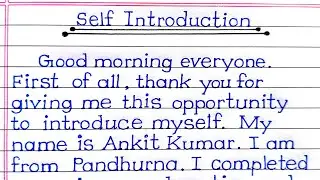 Self Introduction
Good morning everyone.
First of all, thank you for
giving me this opportunity
to introduce myself. My
name is Ankit Kumar. I am
from Pandhurna. I completed